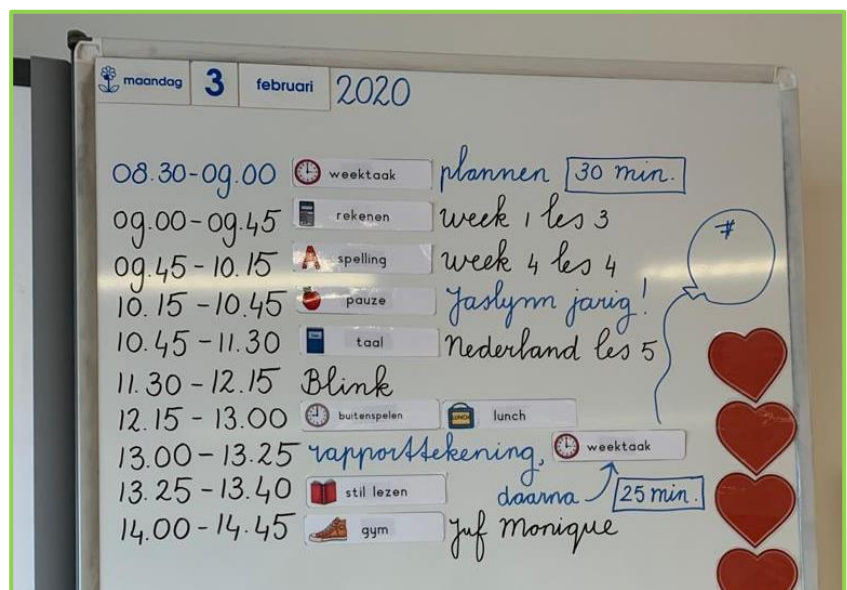 maandag 3 februari 2020
08.30-09.00 weektaak plannen 30 min.
09.00-09.45 rekenen week 1 les 3
09.45-10.15 A spelling week 4 les 4
10.15-10.45 pauze Jaslynn jarig!
10.45-11.30 taal Nederland les 5
11.30-12.15 Blink
12.15-13.00 buitenspelen LUNCH lunch
13.00-13.25 rapporttekening, weektaak
13.25-13.40 stil lezen daarna 25 min.
14.00-14.45 gym Juf Monique